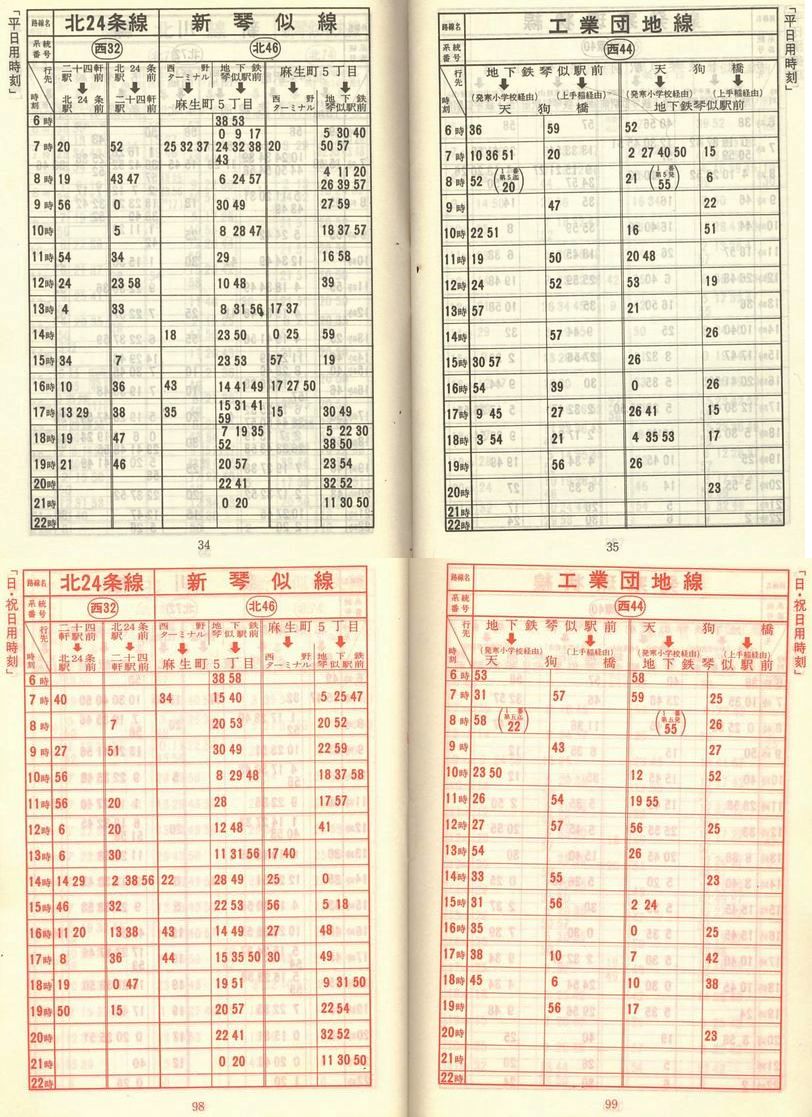 「平日用時刻」
路線名 北24条線 新琴似線
系統番号 西32 北46
行先 時刻 二十四軒駅前 ↓ 北24条駅前 北24条駅前 ↓ 二十四軒駅前 西野ターミナル 地下鉄琴似駅前 ↓ 麻生町5丁目 麻生町5丁目 ↓ 西野ターミナル 地下鉄琴似駅前
6時 38 53
7時 20 52 25 32 37 0 9 17 24 32 38 43 20 5 30 40 50 57
8時 19 43 47 6 24 57 4 11 20 26 39 57
9時 56 0 30 49 27 59
10時 5 8 28 47 18 37 57
11時 54 34 29 16 58
12時 24 23 58 10 48 39
13時 4 33 8 31 56 17 37
14時 18 23 50 0 25 59
15時 34 7 23 53 57 19
16時 10 36 43 14 41 49 17 27 50
17時 13 29 38 35 15 31 41 59 15 30 49
18時 19 47 7 19 35 52 5 22 30 38 50
19時 21 46 20 57 23 54
20時 22 41 32 52
21時 0 20 11 30 50
22時
34
路線名 工業団地線
系統番号 西44
行先 時刻 地下鉄琴似駅前 ↓ (発寒小学校経由) ↓ (上手稲経由) 天狗橋 天狗橋 ↓ (発寒小学校経由) ↓ (上手稲経由) 地下鉄琴似駅前
6時 36 59 52
7時 10 36 51 20 2 27 40 50 15
8時 52 (1番第5迄20) 21 (1番第5発55) 6
9時 47 22
10時 22 51 16 51
11時 19 50 20 48
12時 24 52 53 19
13時 57 21
14時 57 26
15時 30 57 26
16時 54 39 0 26
17時 9 45 27 26 41 15
18時 3 54 21 4 35 53 17
19時 56 26
20時 23
21時
22時
35
「日・祝日用時刻」
路線名 北24条線 新琴似線
系統番号 西32 北46
行先 時刻 二十四軒駅前 ↓ 北24条駅前 北24条駅前 ↓ 二十四軒駅前 西野ターミナル 地下鉄琴似駅前 ↓ 麻生町5丁目 麻生町5丁目 ↓ 西野ターミナル 地下鉄琴似駅前
6時 38 58
7時 40 34 15 40 5 25 47
8時 7 20 53 20 52
9時 27 51 30 49 22 59
10時 56 8 29 48 18 37 58
11時 56 20 28 17 57
12時 6 20 12 48 41
13時 6 30 11 31 56 17 40
14時 14 29 2 38 56 22 28 49 25 0
15時 46 32 22 53 56 5 18
16時 11 20 13 38 43 14 49 27 48
17時 8 36 44 15 35 50 30 49
18時 19 0 47 19 51 9 31 50
19時 50 15 20 57 22 54
20時 22 41 32 52
21時 0 20 11 30 50
22時
98
路線名 工業団地線
系統番号 西44
行先 時刻 地下鉄琴似駅前 ↓ (発寒小学校経由) ↓ (上手稲経由) 天狗橋 天狗橋 ↓ (発寒小学校経由) ↓ (上手稲経由) 地下鉄琴似駅前
6時 53 58
7時 31 57 59 25
8時 58 (1番第五迄22) (1番第五発55) 26
9時 43 27
10時 23 50 12 52
11時 26 54 19 55
12時 27 57 56 25
13時 54 26
14時 33 55 23
15時 31 56 2 24
16時 35 0 25
17時 38 10 7 42
18時 45 6 10 38
19時 56 17
20時 23
21時
22時
99